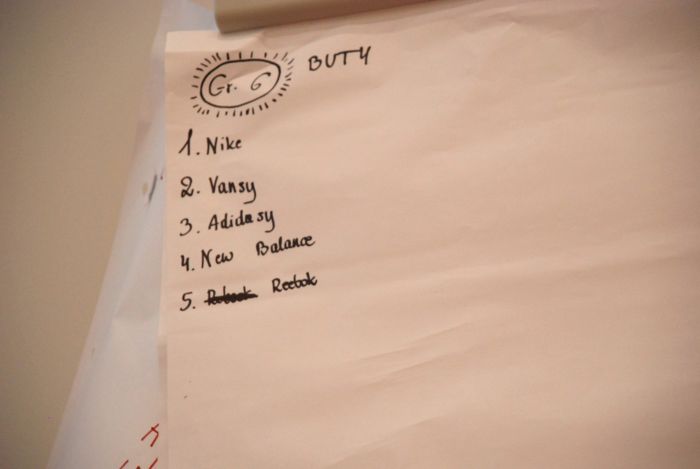 Gr. 6 BUTY
1. Nike
2. Vansy
3. Adidasy
4. New Balance
5. Reebok